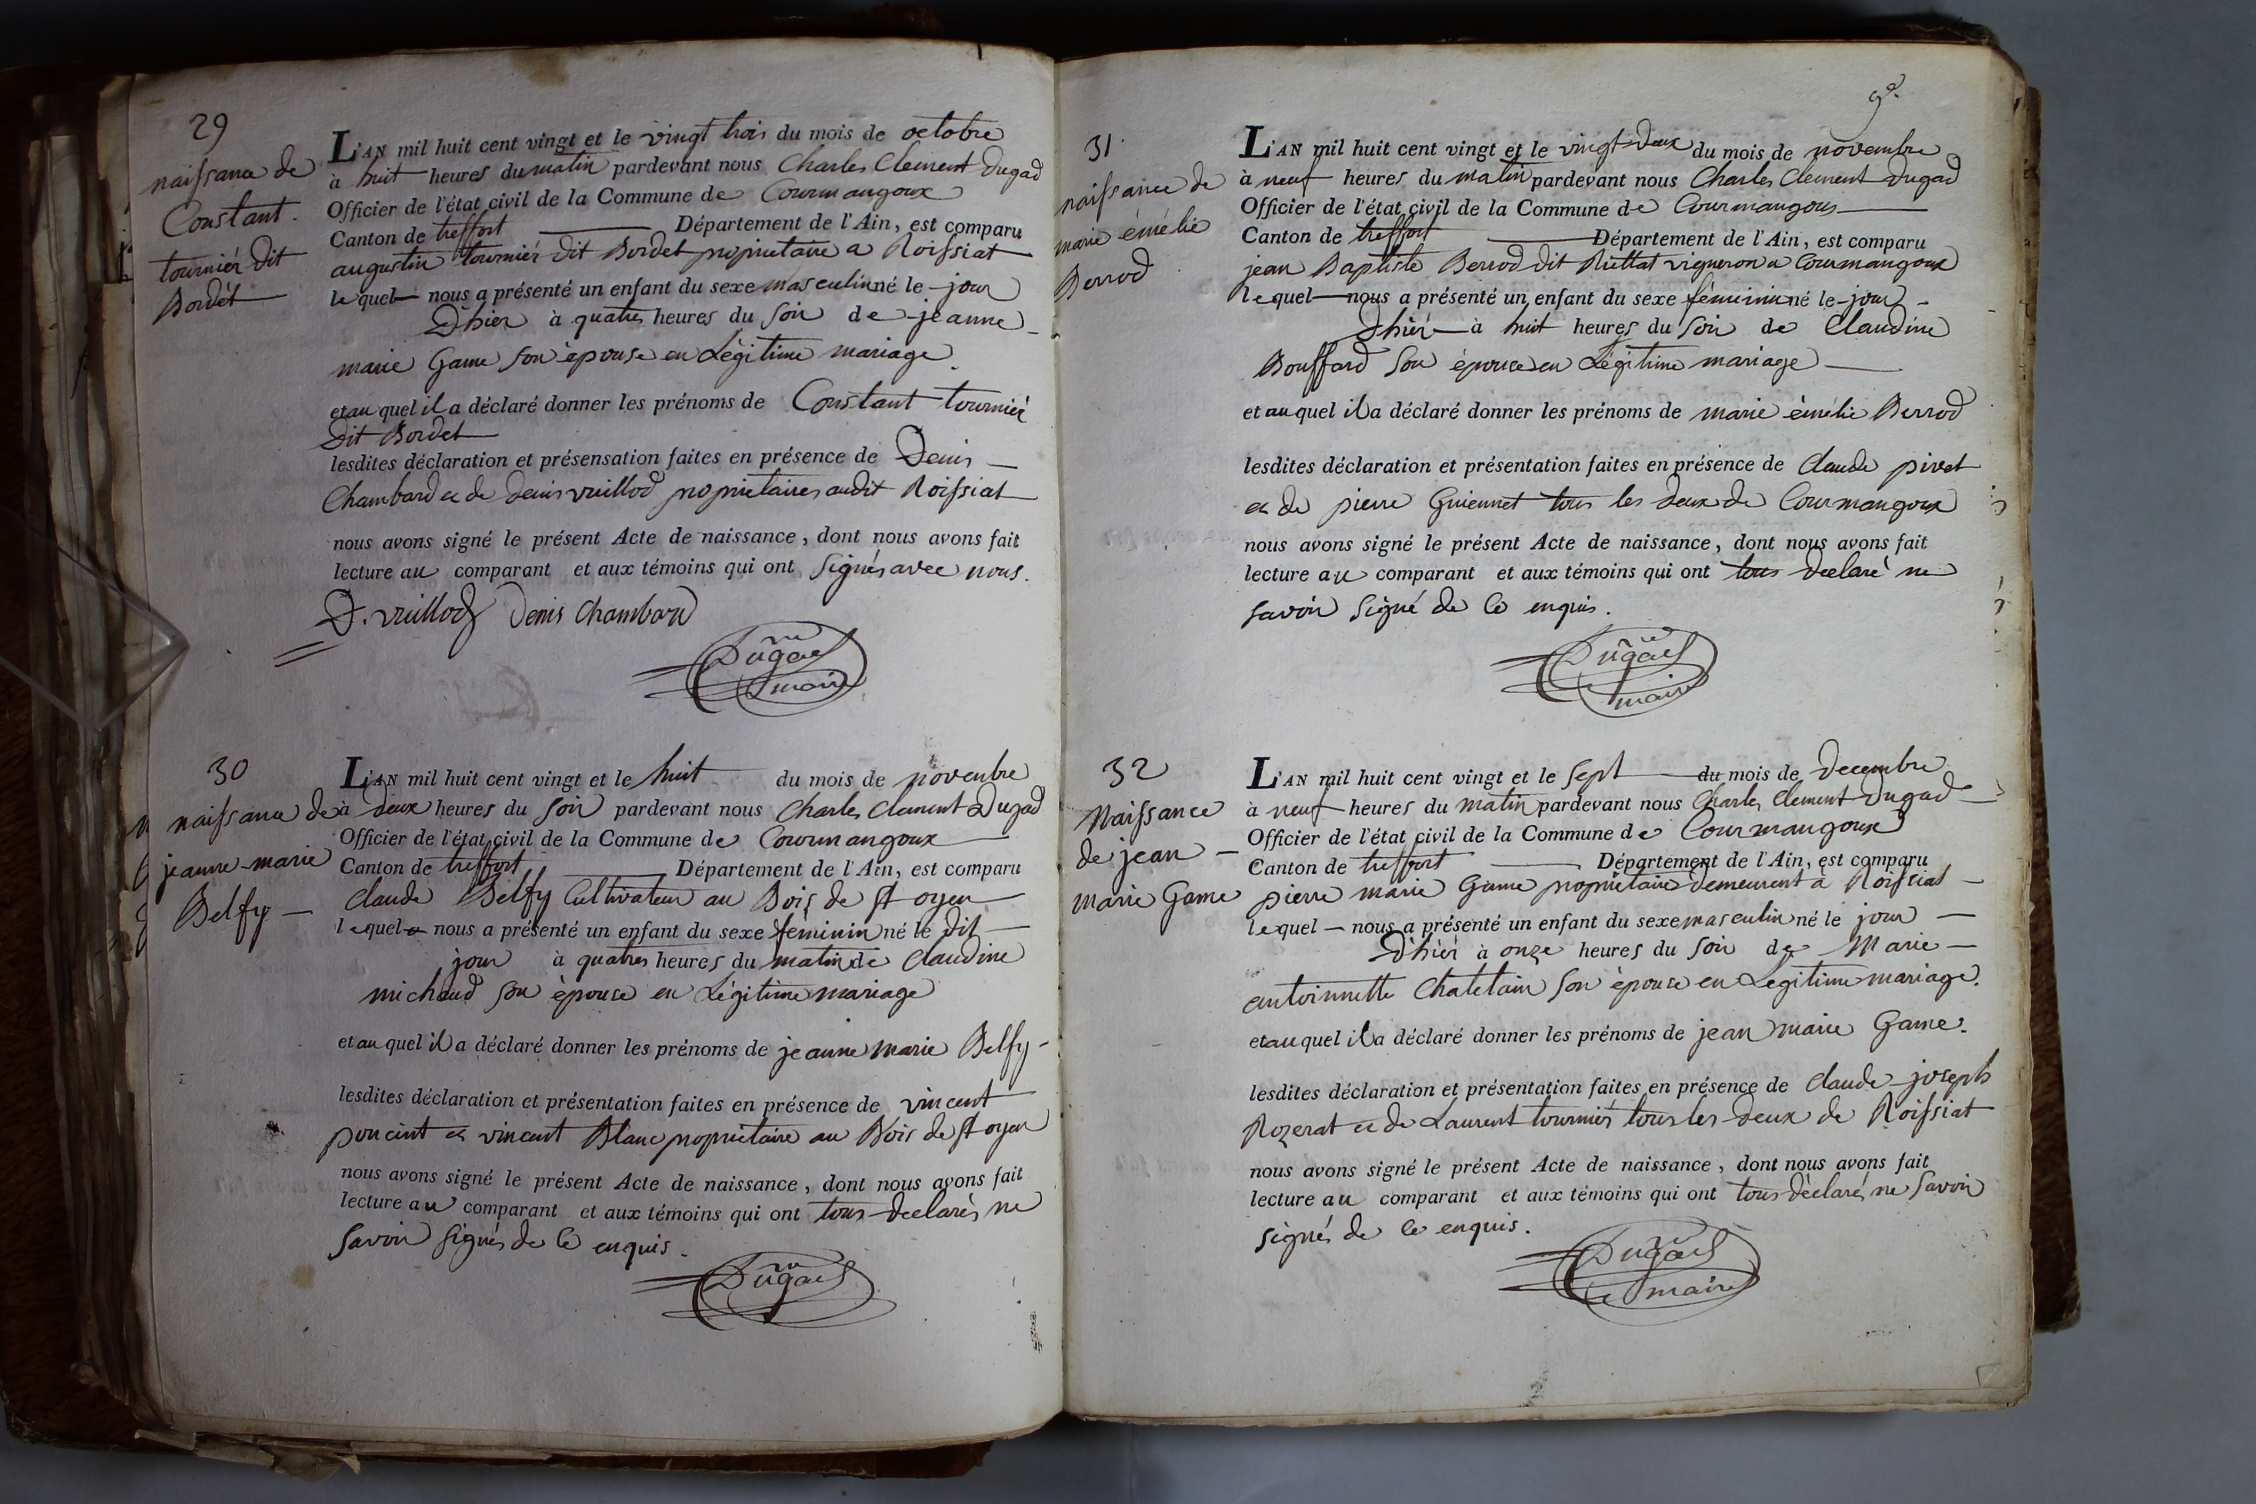 29
naissance de
Constant
tourniér dit
Bordet
L'AN mil huit cent vingt et le vingt trois du mois de octobre
à huit heures du matin pardevant nous Charles Clement Dugad
Officier de l'état civil de la Commune de Courmangoux
Canton de treffort Département de l'Ain, est comparu
augustin tourniér dit Bordet propriétaire a Roissiat
lequel nous a présenté un enfant du sexe masculin né le jour
D'hier à quatres heures du soir de jeanne
marie Game son épouse en Légitime mariage
et au quel il a déclaré donner les prénoms de Constant tourniér
dit Bordet
lesdites déclaration et présensation faites en présence de Denis
Chambard et de denis vuillod propriétaires audit Roissiat
nous avons signé le présent Acte de naissance, dont nous avons fait
lecture au comparant et aux témoins qui ont signés avec nous.
D. vuillod Denis Chambard
Dugad
maire
30
naissance de
jeanne marie
Belfy
L'AN mil huit cent vingt et le huit du mois de novembre
à deux heures du soir pardevant nous Charles Clement Dugad
Officier de l'état civil de la Commune de Courmangoux
Canton de treffort Département de l'Ain, est comparu
Claude Belfy Cultivateur au Bois de st oyen
lequel nous a présenté un enfant du sexe féminin né le dit
jour à quatres heures du matin de Claudine
michaud son épouse en Légitime mariage
et au quel il a déclaré donner les prénoms de jeanne marie Belfy
lesdites déclaration et présentation faites en présence de vincent
poncint et vincent Blanc propriétaire au Bois de st oyen
nous avons signé le présent Acte de naissance, dont nous avons fait
lecture au comparant et aux témoins qui ont tous declarés ne
Savoir signés de ce enquis.
Dugad
9e.
31.
naissance de
marie émélie
Berrod
L'AN mil huit cent vingt et le vingt deux du mois de novembre
à neuf heures du matin pardevant nous Charles Clement Dugad
Officier de l'état civil de la Commune de Courmangoux
Canton de treffort Département de l'Ain, est comparu
jean Baptiste Berrod dit vigneron a Courmangoux
lequel nous a présenté un enfant du sexe féminin né le jour
D'hiér à huit heures du soir de Claudine
Bouffard son épouce en Légitime mariage
et au quel il a déclaré donner les prénoms de marie émélie Berrod
lesdites déclaration et présentation faites en présence de Claude pivet
et de pierre Guiennet tous les deux de Courmangoux
nous avons signé le présent Acte de naissance, dont nous avons fait
lecture au comparant et aux témoins qui ont tous declaré ne
savoir signé de ce enquis.
Dugad
maire
32
Naissance
de jean
marie Game
L'AN mil huit cent vingt et le Sept du mois de Decembre
à neuf heures du matin pardevant nous Charles Clement Dugad
Officier de l'état civil de la Commune de Courmangoux
Canton de treffort Département de l'Ain, est comparu
pierre marie Game propriétaire demeurent à Roissiat
lequel nous a présenté un enfant du sexe masculin né le jour
D'hiér à onze heures du soir de Marie
antoinnette Chatelain son épouse en Legitime mariage.
et au quel il a déclaré donner les prénoms de jean marie Game.
lesdites déclaration et présentation faites en présence de Claude joseph
Rozerat et de Laurent tourniér tous les deux de Roissiat
nous avons signé le présent Acte de naissance, dont nous avons fait
lecture au comparant et aux témoins qui ont tous déclarés ne Savoir
signés de ce enquis.
Dugad
maire